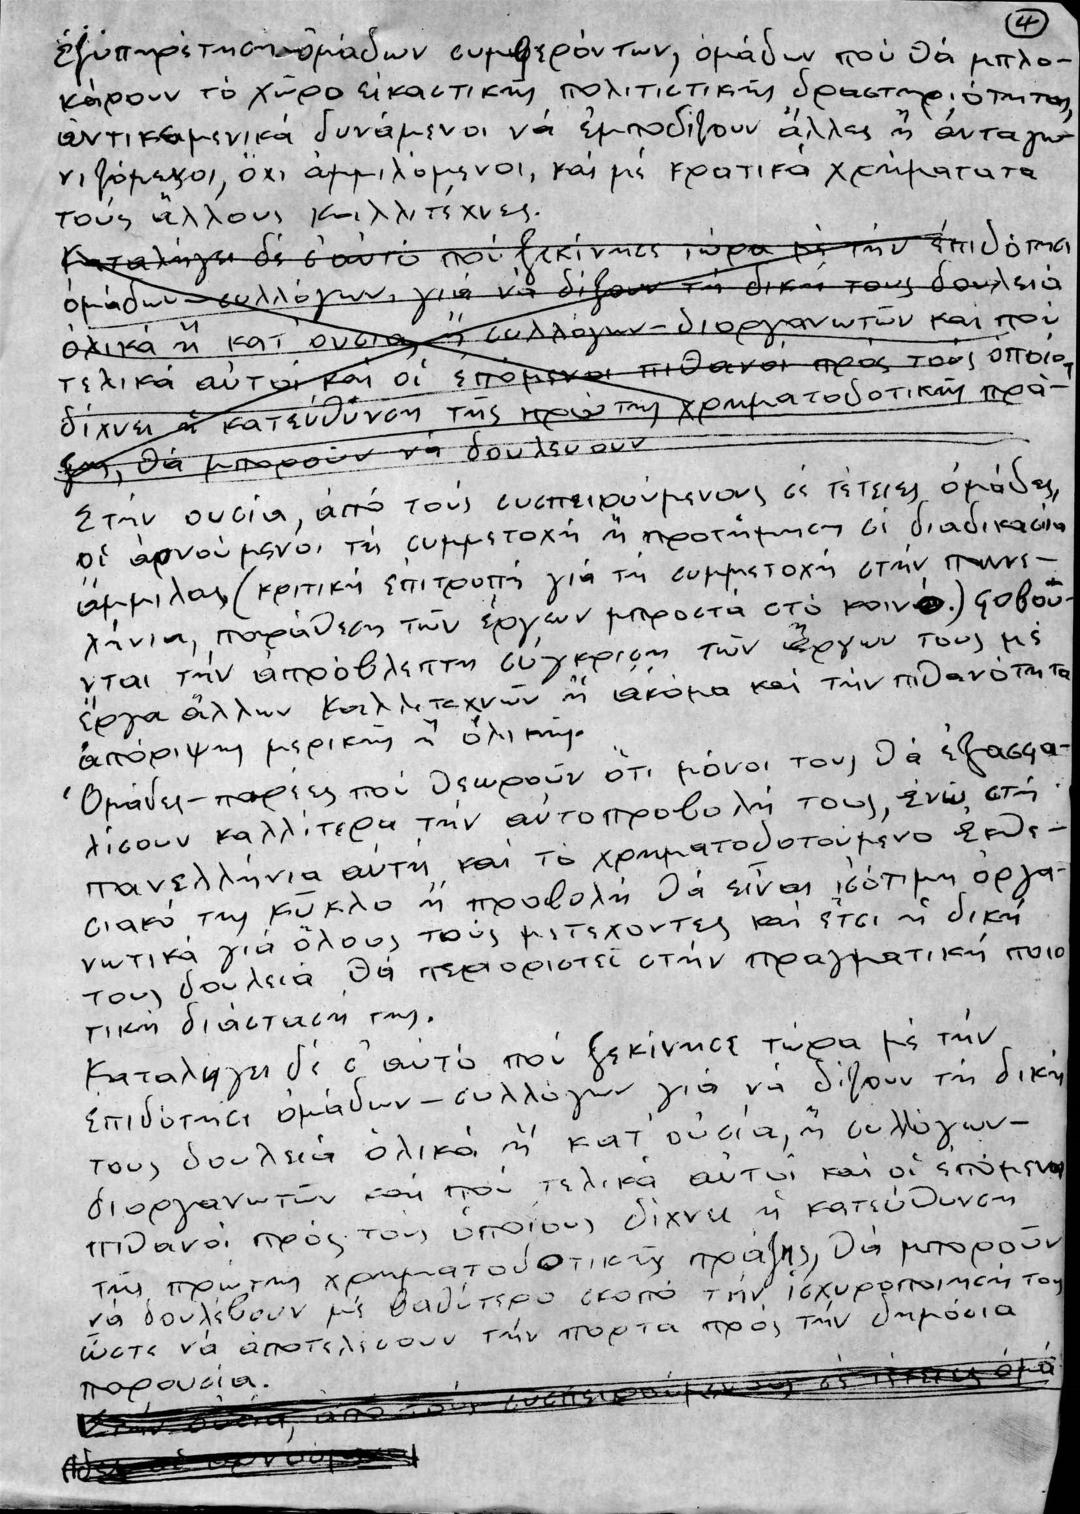 ④
ἐξυπηρέτηση ὁμάδων συμφερόντων, ὁμάδων πού θά μπλο-
κάρουν τό χῶρο εἰκαστικῆς πολιτιστικῆς δραστηριότητας,
ἀντικειμενικά δυνάμενοι νά ἐμποδίζουν ἄλλες ἤ ἀνταγω-
νιζόμενοι, ὄχι ἁμμιλόμενοι, καί μέ κρατικά χρήματα
τούς ἄλλους καλλιτέχνες.
Καταλήγει δέ σ' αὐτό πού ξεκίνησε τώρα μέ τήν ἐπιδότηση
ὁμάδων-συλλόγων, γιά νά δίξουν τή δική τους δουλειά
ὁλικά ἤ κατ' ουσία, ἤ συλλόγων-διοργανωτῶν καί πού
τελικά αὐτοί καί οἱ ἑπόμενοι πιθανοί πρός τούς ὁποίους
δίχνει ἡ κατεύθυνση τῆς πρώτης χρηματοδοτικῆς πρά-
ξης, θά μποροῦν νά δουλευουν
Στήν ουσία, ἀπό τούς συσπειρούμενους σέ τέτειες ὁμάδες,
οἱ ἀρνούμενοι τή συμμετοχή ἤ προτήμηση σέ διαδικασία
ἅμμιλας (κριτική ἐπιτροπή γιά τή συμμετοχή στήν πανε-
λήνια, παράθεση τῶν ἔργων μπροστά στό κοινό.) φοβοῦ-
νται τήν ἀπρόβλεπτη σύγκριση τῶν ἔργων τους μέ
ἔργα ἄλλων καλλιτεχνῶν ἤ ἀκόμα καί τήν πιθανότητα
ἀπόριψης μερικῆς ἤ ὁλικῆς.
Ὁμάδες-παρέες πού θεωροῦν ὅτι μόνοι τους θά ἐξασφα-
λίσουν καλλίτερα τήν αὐτοπροβολή τους, ἐνῶ στή
πανελλήνια αὐτή καί τό χρηματοδοτούμενο ἐκθε-
σιακό της κῦκλο ἡ προβολή θά εἶναι ἰσότιμη ὀργα-
νωτικά γιά ὅλους τούς μετεχοντες καί ἔτσι ἡ δική
τους δουλειά θά περιοριστεῖ στήν πραγματική ποιο
τική διάσταση της.
Καταλήγει δέ σ' αὐτό πού ξεκίνησε τώρα μέ τήν
ἐπιδότηση ὁμάδων-συλλόγων γιά νά δίξουν τή δική
τους δουλειά ὁλικά ἤ κατ' οὐσία, ἤ συλλόγων-
διοργανωτῶν καί πού τελικά αὐτοί καί οἱ ἑπόμενοι
πιθανοί πρός τούς ὁποίους δίχνει ἡ κατεύθυνση
τῆς πρώτης χρηματοδοτικῆς πράξης, θά μποροῦν
νά δουλέψουν μέ βαθύτερο σκοπό τήν ἰσχυροποίησή τους
ὥστε νά ἀποτελέσουν τήν πορτα πρός τήν δημόσια
παρουσία.
Στήν οὐσία, ἀπό τούς συσπειρούμενους σέ τέτειες ὁμά
δες οἱ ἀρνούμενοι